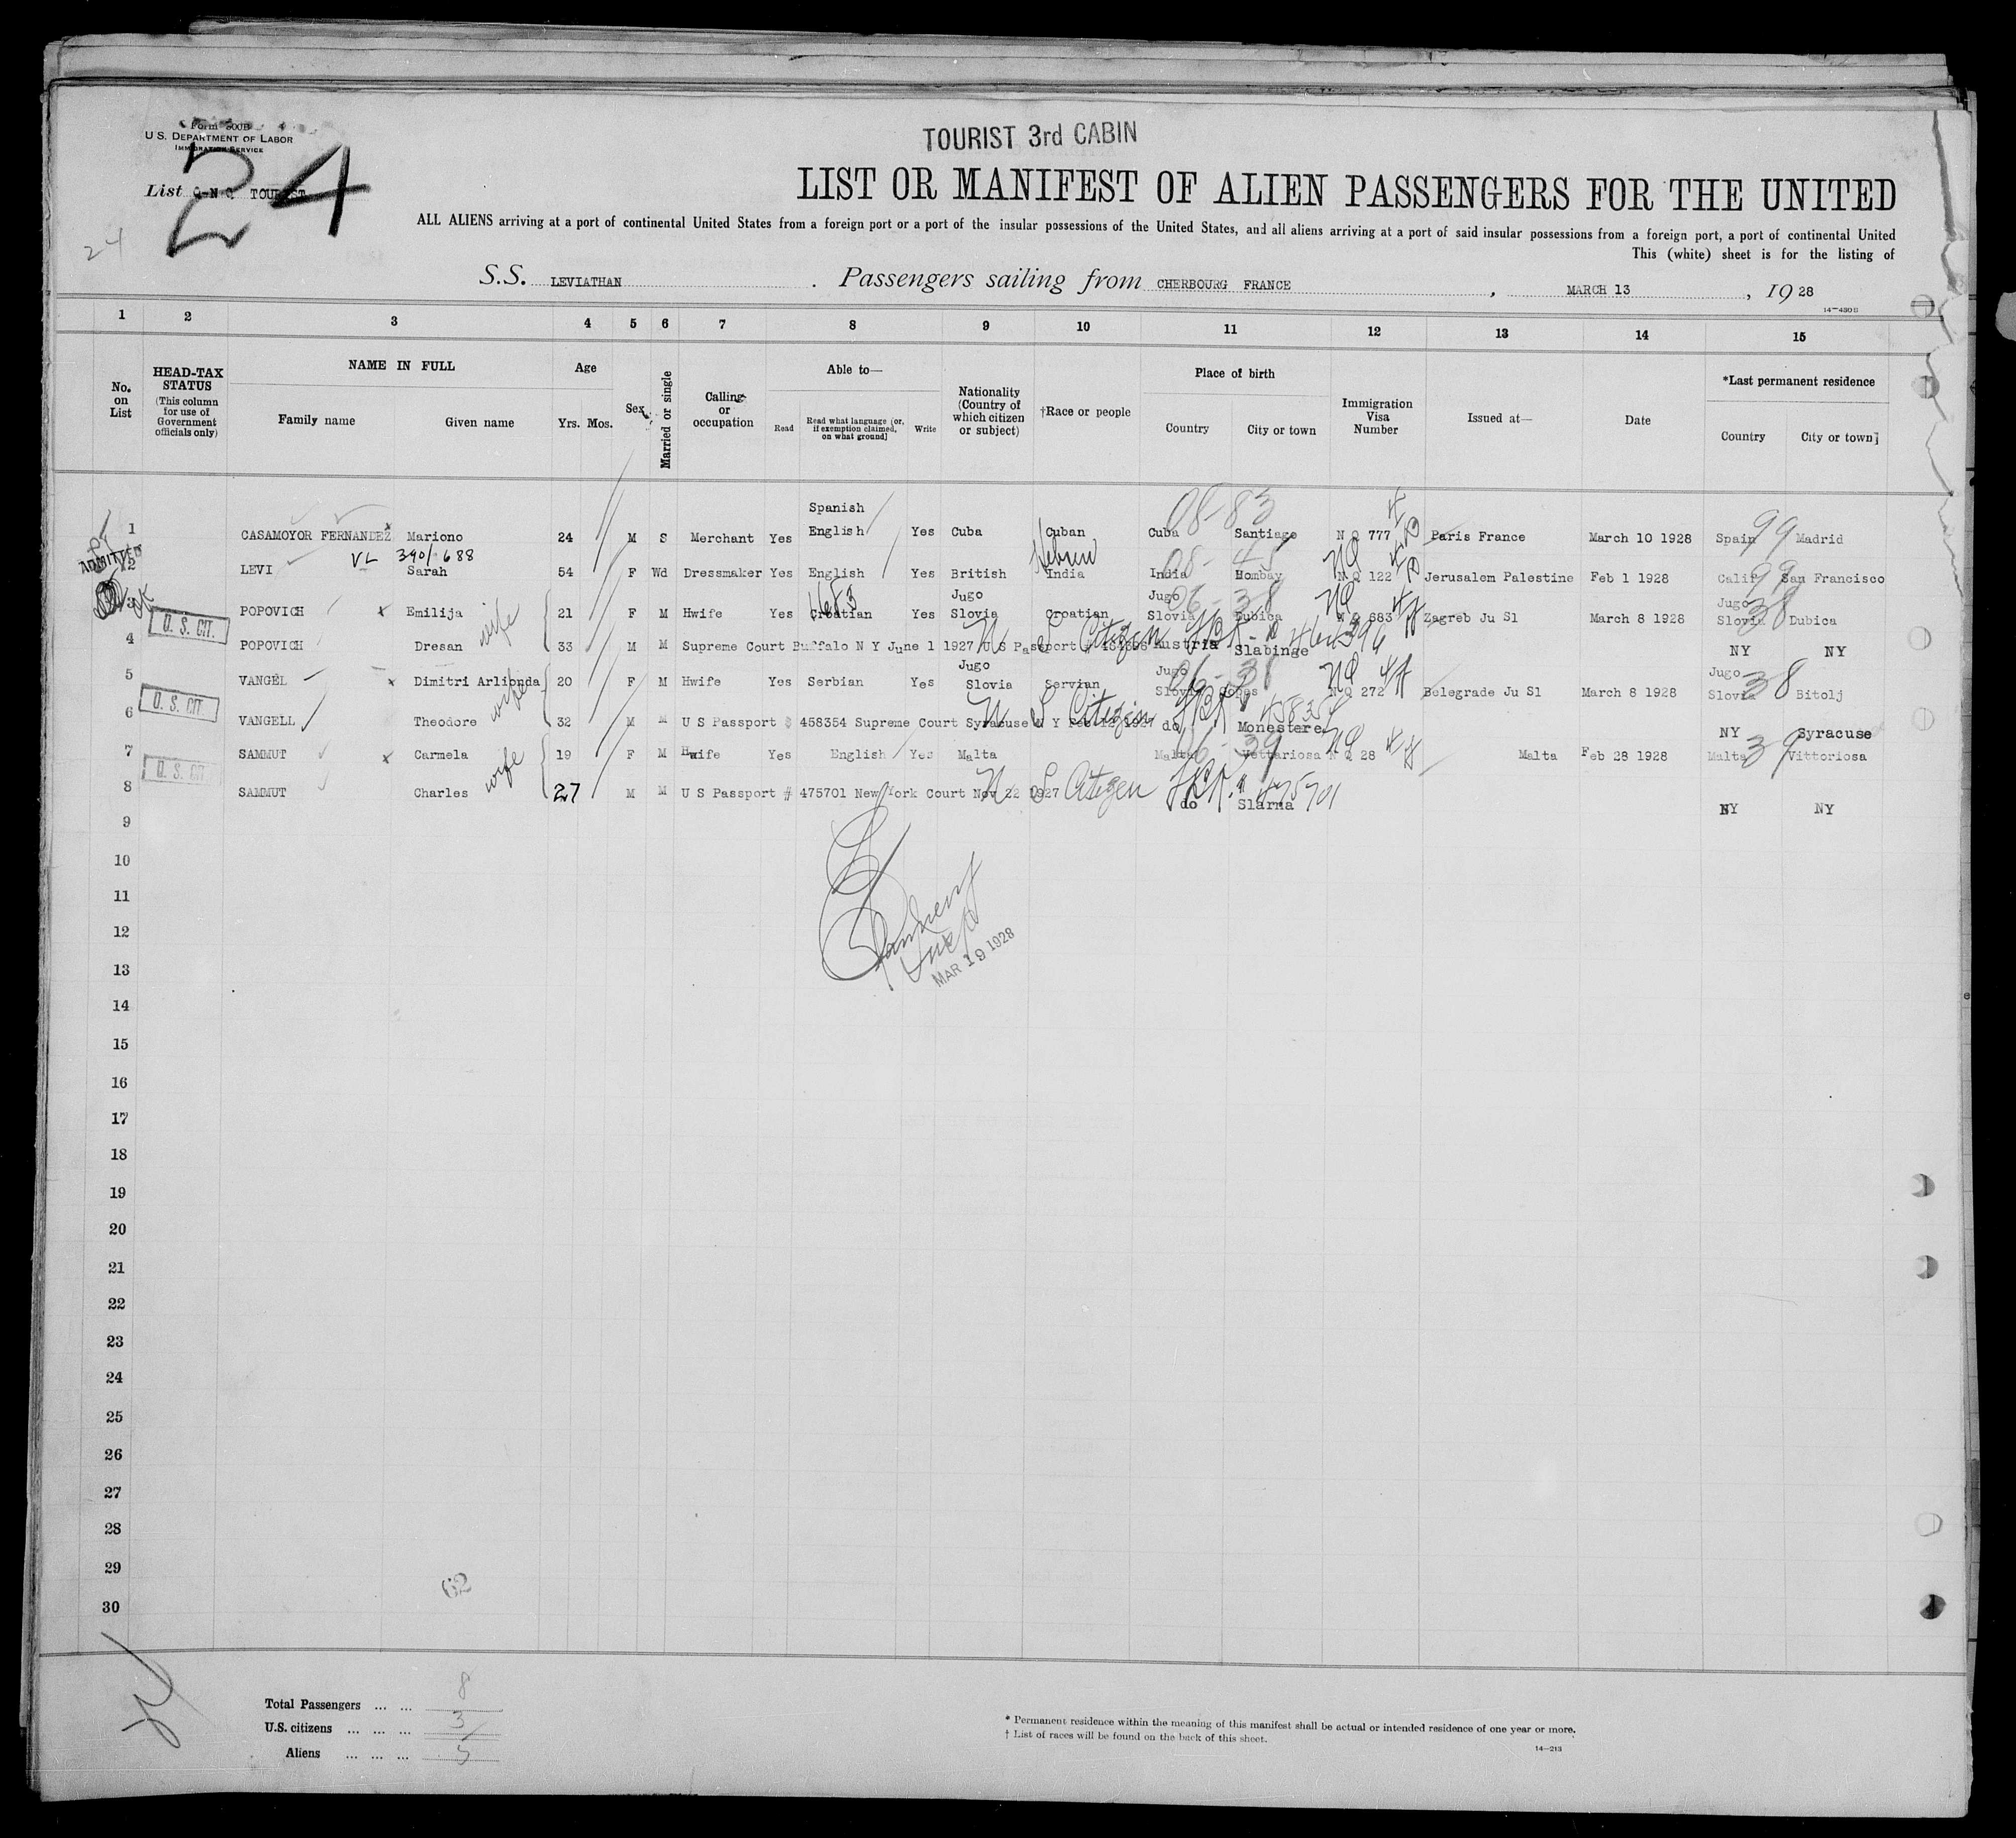 Form 500B
U. S. DEPARTMENT OF LABOR
IMMIGRATION SERVICE
TOURIST 3rd CABIN
24
List TOURIST
LIST OR MANIFEST OF ALIEN PASSENGERS FOR THE UNITED
24
ALL ALIENS arriving at a port of continental United States from a foreign port or a port of the insular possessions of the United States, and all aliens arriving at a port of said insular possessions from a foreign port, a port of continental United
This (white) sheet is for the listing of
S.S. LEVIATHAN . Passengers sailing from CHERBOURG FRANCE , MARCH 13 , 19 28
1 2 3 4 5 6 7 8 9 10 11 12 13 14 15
No. on List
HEAD-TAX STATUS (This column for use of Government officials only)
NAME IN FULL Family name Given name
Age Yrs. Mos.
Sex
Married or single
Calling or occupation
Able to— Read Read what language [or, if exemption claimed, on what ground] Write
Nationality (Country of which citizen or subject)
†Race or people
Place of birth Country City or town
Immigration Visa Number
Issued at—
Date
*Last permanent residence Country City or town]
1 CASAMOYOR FERNANDEZ Mariono 24 M S Merchant Yes Spanish English Yes Cuba Cuban Cuba Santiago N Q 777 Paris France March 10 1928 Spain Madrid
08-83 99
VL 390/688
ADMITTED
2 LEVI Sarah 54 F Wd Dressmaker Yes English Yes British India Hebrew India Bombay N Q 122 Jerusalem Palestine Feb 1 1928 Calif San Francisco
08-45 NQ 99
3 POPOVICH Emilija wife 21 F M Hwife Yes Croatian Yes Jugo Slovia Croatian Jugo Slovia Dubica N Q 683 Zagreb Ju Sl March 8 1928 Jugo Slovia Dubica
06-38 NQ 38
U. S. CIT.
4 POPOVICH Dresan 33 M M Supreme Court Buffalo N Y June 1 1927 U S Passport # Austria Slabinge NY NY
N S Citizen
5 VANGEL Dimitri Arlionda wife 20 F M Hwife Yes Serbian Yes Jugo Slovia Servian Jugo Slovia N Q 272 Belegrade Ju Sl March 8 1928 Jugo Slovia Bitolj
06-38 NQ 38
U. S. CIT.
6 VANGELL Theodore 32 M M U S Passport # 458354 Supreme Court Syracuse N Y Feb 12 1927 do Monestere NY Syracuse
N S Citizen 458354
7 SAMMUT Carmela wife 19 F M Hwife Yes English Yes Malta Malta Vettariosa N Q 28 Malta Feb 28 1928 Malta Vittoriosa
39 NQ 39
U. S. CIT.
8 SAMMUT Charles 27 M M U S Passport # 475701 New York Court Nov 22 1927 do Slarna NY NY
N S Citizen 475701
9
10
11
12
13
MAR 19 1928
14
15
16
17
18
19
20
21
22
23
24
25
26
27
28
29
62
30
Total Passengers ... ... 8
U.S. citizens ... ... ... 3
Aliens ... ... ... 5
* Permanent residence within the meaning of this manifest shall be actual or intended residence of one year or more.
† List of races will be found on the back of this sheet.
14—213